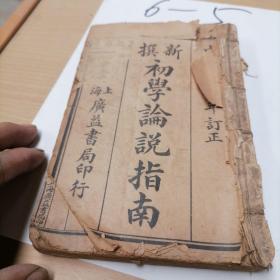 6-5
年訂正
新撰
初學論說指南
上海廣益書局印行